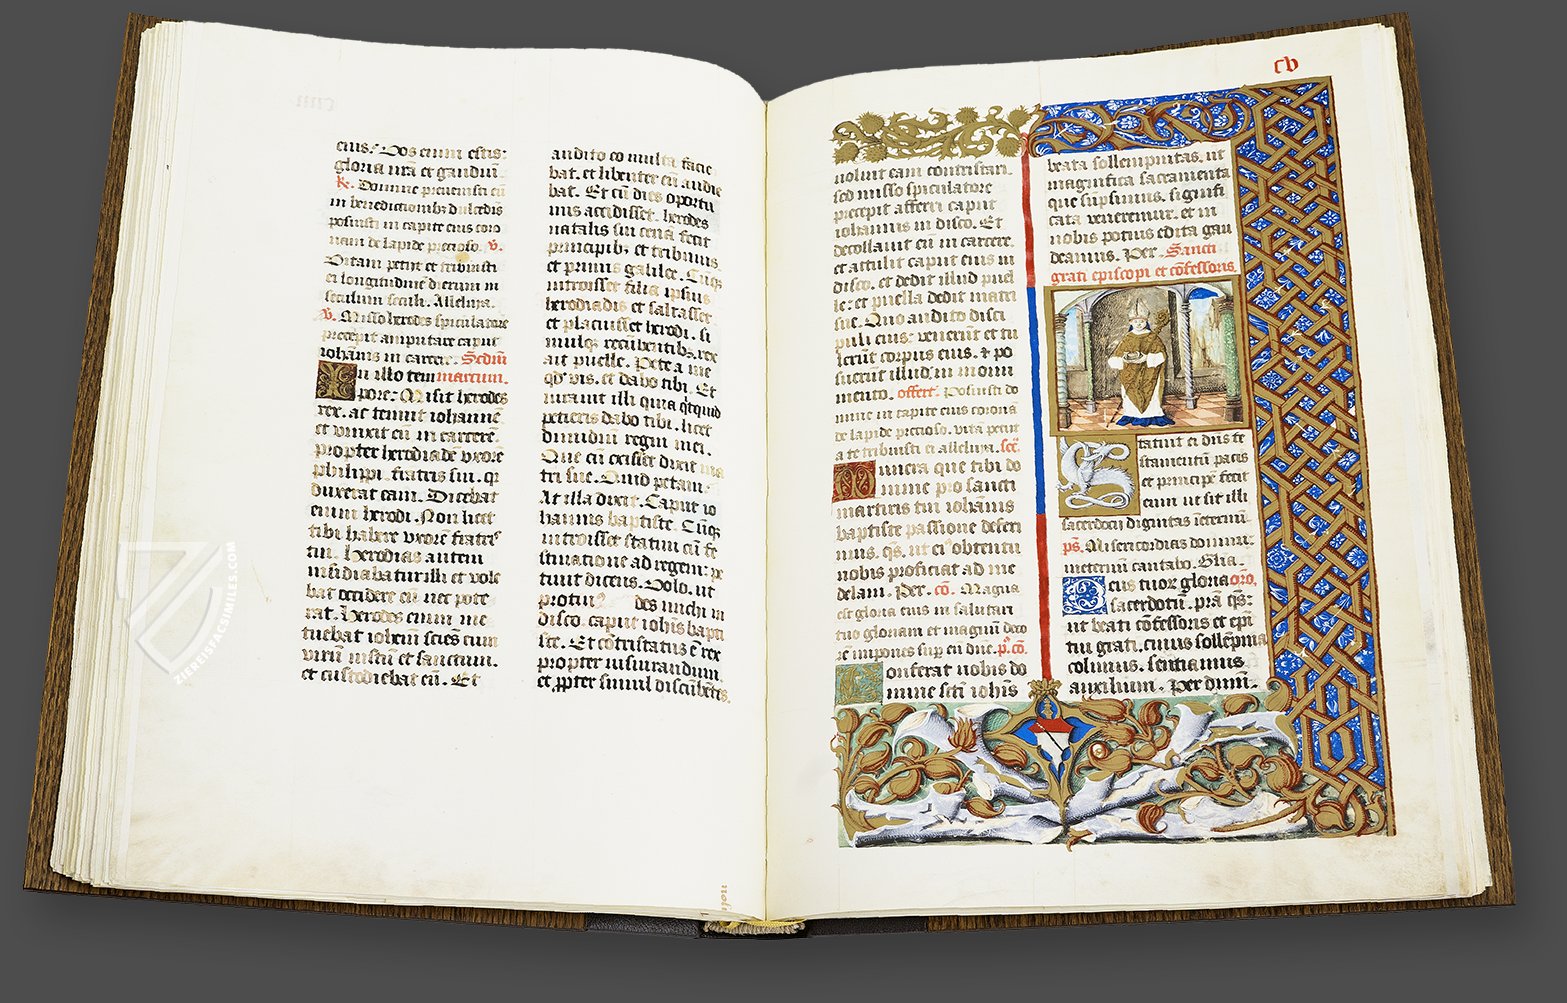 eius. Vos enim estis
gloria nra et gaudiū
R. Domine prevenisti eū
in benedictionibꝫ dulcedis
posuisti in capite eius coro
nam de lapide precioso. v.
Vitam petiit et tribuisti
ei longitudinē dierum in
seculum seculi. Alleluya.
v. Misso herodes spiculatore
precepit amputare caput
iohānis in carcere. Scdm̄
In illo tem marcum.
pore: Misit herodes
rex. ac tenuit iohannē
et vinxit eū in carcere.
propter herodiadē uxorē
philippi fratris sui. qr
duxerat eam. Dicebat
enim herodi. Non licet
tibi habere uxorē fratris
tui. Herodias autem
insidiabatur illi et vole
bat occidere eū nec pote
rat. Herodes enim me
tuebat iohem sciēs eum
virū iustū et sanctum.
et custodiebat eū. Et
audito eo multa facie
bat. et libenter eū audie
bat. Et cū dies oportu
nus accidisset. herodes
natalis sui cenā fecit
principibꝫ et tribunis
et primis galilee. Cūqꝫ
introisset filia ipsius
herodiadis et saltasset
et placuisset herodi. si
mulqꝫ recubentibꝫ. rex
ait puelle. Pete a me
qd vis. et dabo tibi. Et
iuravit illi quia qͥtquid
petieris dabo tibi. licet
dimidiū regni mei.
Que cū exisset dixit ma
tri sue. Quid petam.
At illa dixit. Caput io
hannis baptiste. Cūqꝫ
introisset statim cū fe
stinatione ad regem: pe
tiuit dicens. Volo. ut
protin? des michi in
disco. caput iohis bapti
ste. Et cōtristatus ē rex
propter iusiurandum.
et ꝓpter simul discūbētes.
cv
noluit eam contristari.
sed misso spiculatore
precepit afferri caput
iohannis in disco. Et
decollavit eū in carcere.
et attulit caput eius in
disco. et dedit illud puel
le: et puella dedit matri
sue. Quo audito disci
puli eius: venerūt et tu
lerūt corpus eius. & po
suerūt illud in monu
mento. offert. Posuisti do
mine in capite eius coronā
de lapide precioso. vitā petiit
a te tribuisti ei alleluya. sec̄.
Munera que tibi do
mine pro sancti
martiris tui iohānis
baptiste passione deferi
mus. qs. ut ei? obtentu
nobis proficiat ad me
delam. Per. cō. Magna
est gloria eius in salutari
tuo gloriam et magnū deco
rē impones sup eū dne. p. cō.
Conferat nobis do
mine scti iohīs
beata sollempnitas. ut
magnifica sacramenta
que sūpsimus. signifi
cata veneremur. et in
nobis potius edita gau
deamus. Per. Sancti
grati episcopi et cōfessoris.
Statuit ei dns te
stamentū pacis
et principē fecit
eum ut sit illi
sacerdocii dignitas ineternū.
ps. Misericordias domini:
ineternū cantabo. Gloria.
Deus tuor gloria oro.
sacerdotū. prā qs:
ut beati cōfessoris et epi
tui grati. cuius sollēpnia
colimus. sentiamus
auxilium. Per dnm.
ZIEREISFACSIMILES.COM